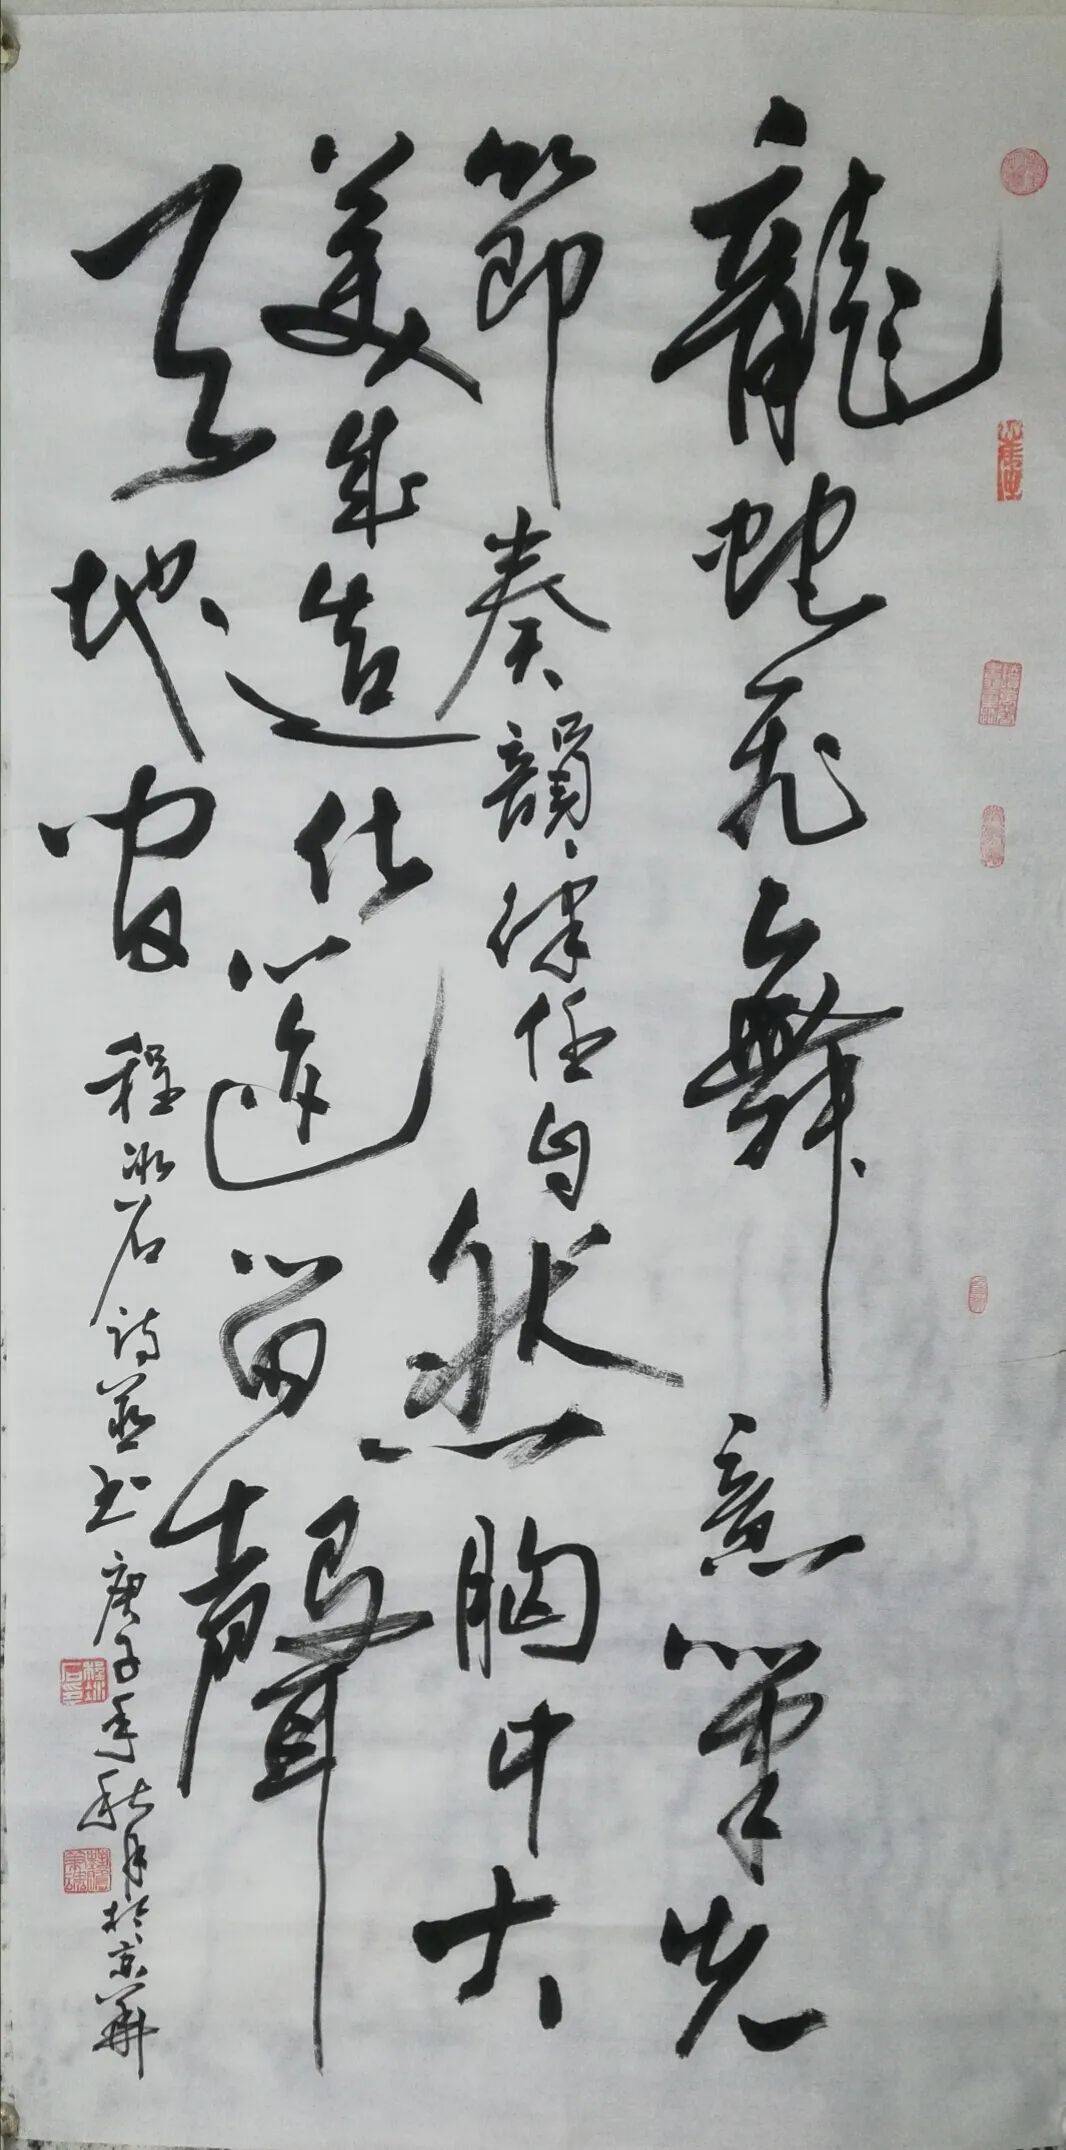 龍蛇飛舞意筆先
節奏韻律任自然胸中大
美成造化筆逐留聲
天地間
程冰石詩並书庚子年秋月於京華